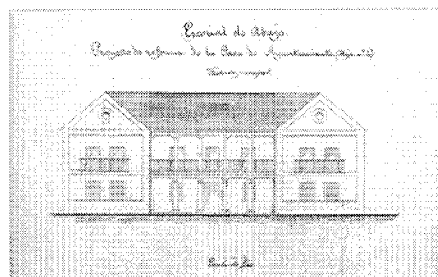 Escorial de Abajo.
Proyecto de reforma de la Casa de Ayuntamiento
Fachada principal
Escala de